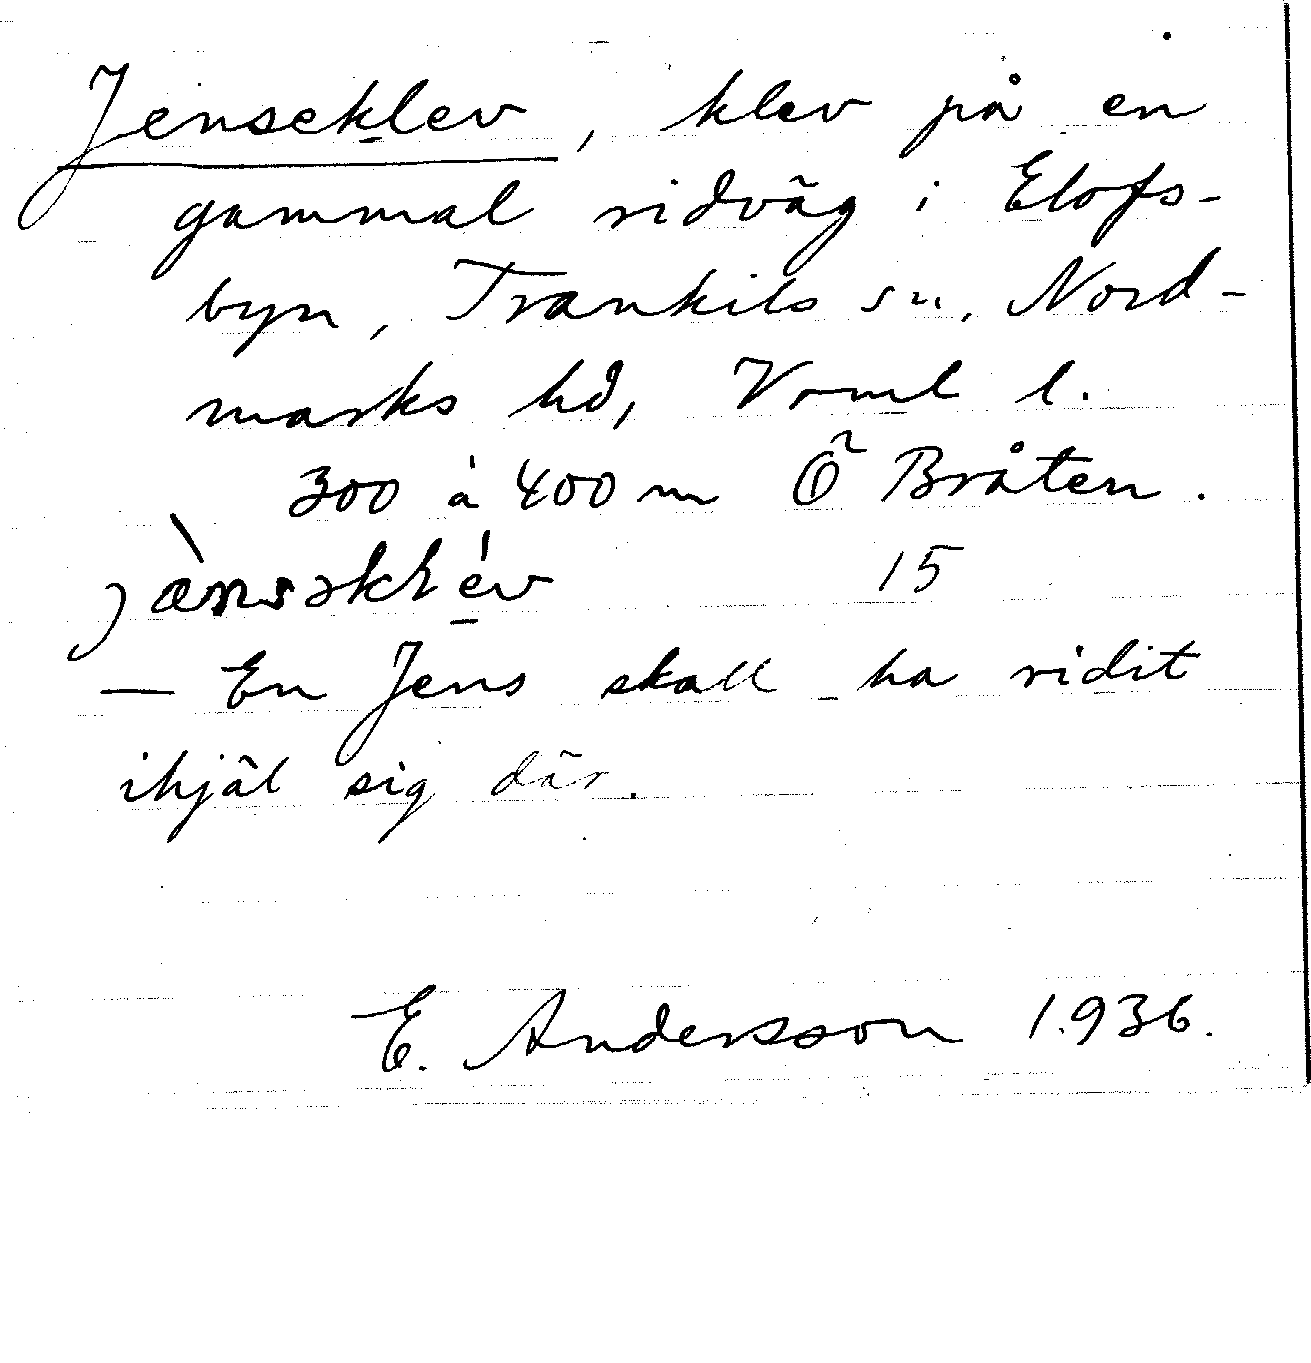 Jenseklev, klev på en
gammal ridväg i Elofs-
byn, Trankils sn, Nord-
marks hd, Vrml l.
300 à 400 m Ö Bråten.
15
— En Jens skall ha ridit
ihjäl sig där.
E. Andersson 1936.